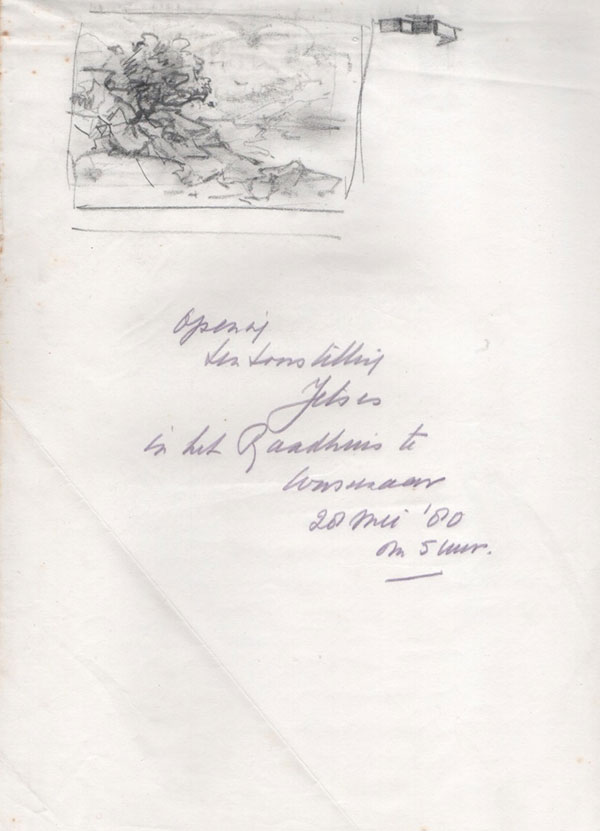 Opening
tentoonstelling
Jelses
in het Raadhuis te
Wassenaar
28 Mei '80
om 5 uur.